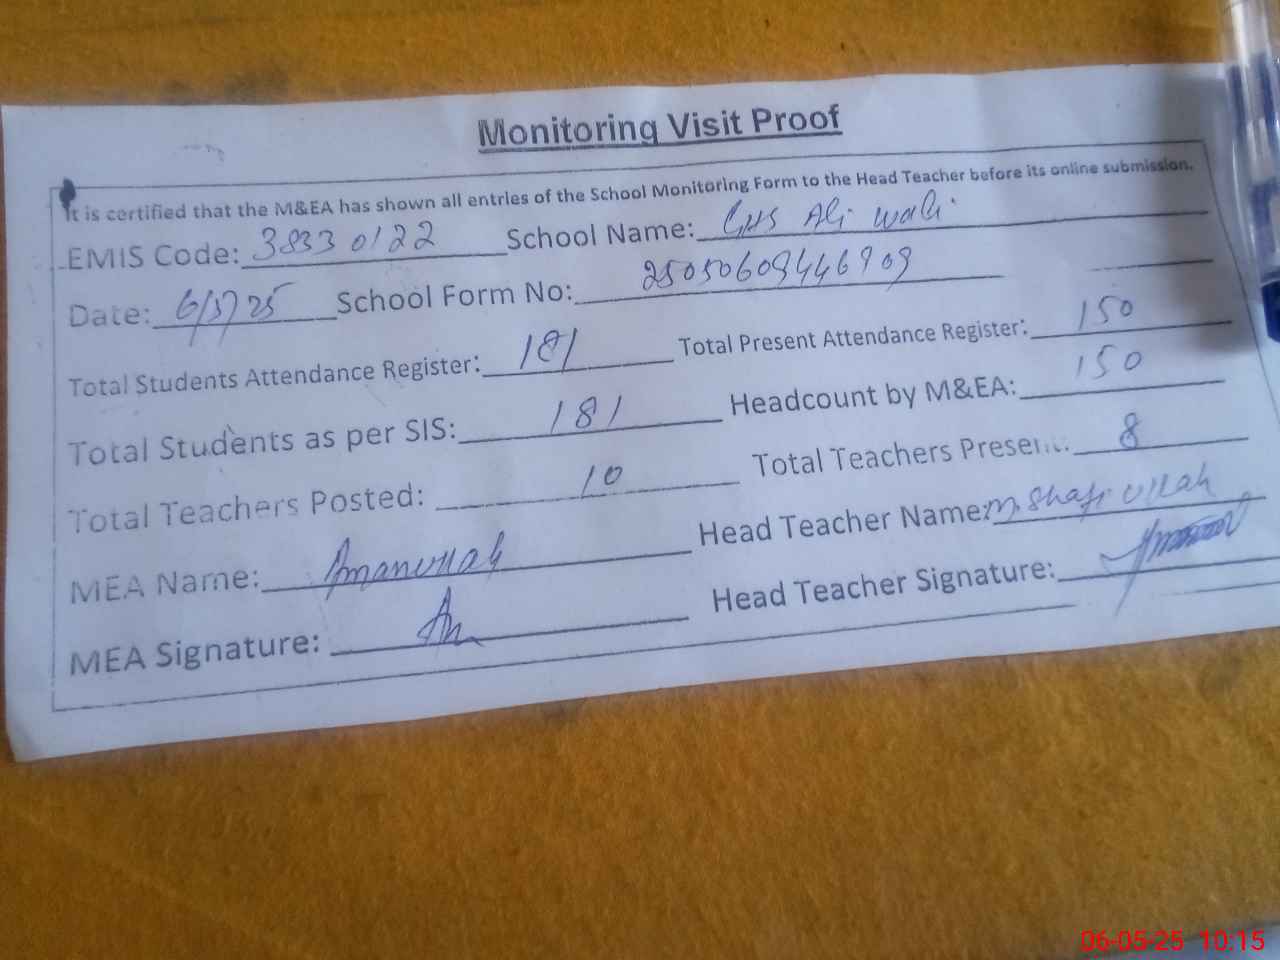 Monitoring Visit Proof
It is certified that the M&EA has shown all entries of the School Monitoring Form to the Head Teacher before its online submission.
EMIS Code: 38330122 School Name: GHS Ali Wali
Date: 6/5/25 School Form No: 25050609446909
Total Students Attendance Register: 181 Total Present Attendance Register: 150
Total Students as per SIS: 181 Headcount by M&EA: 150
Total Teachers Posted: 10 Total Teachers Present: 8
MEA Name: Amanullah Head Teacher Name: M. Shafi Ullah
MEA Signature: Head Teacher Signature:
06-05-25 10:15